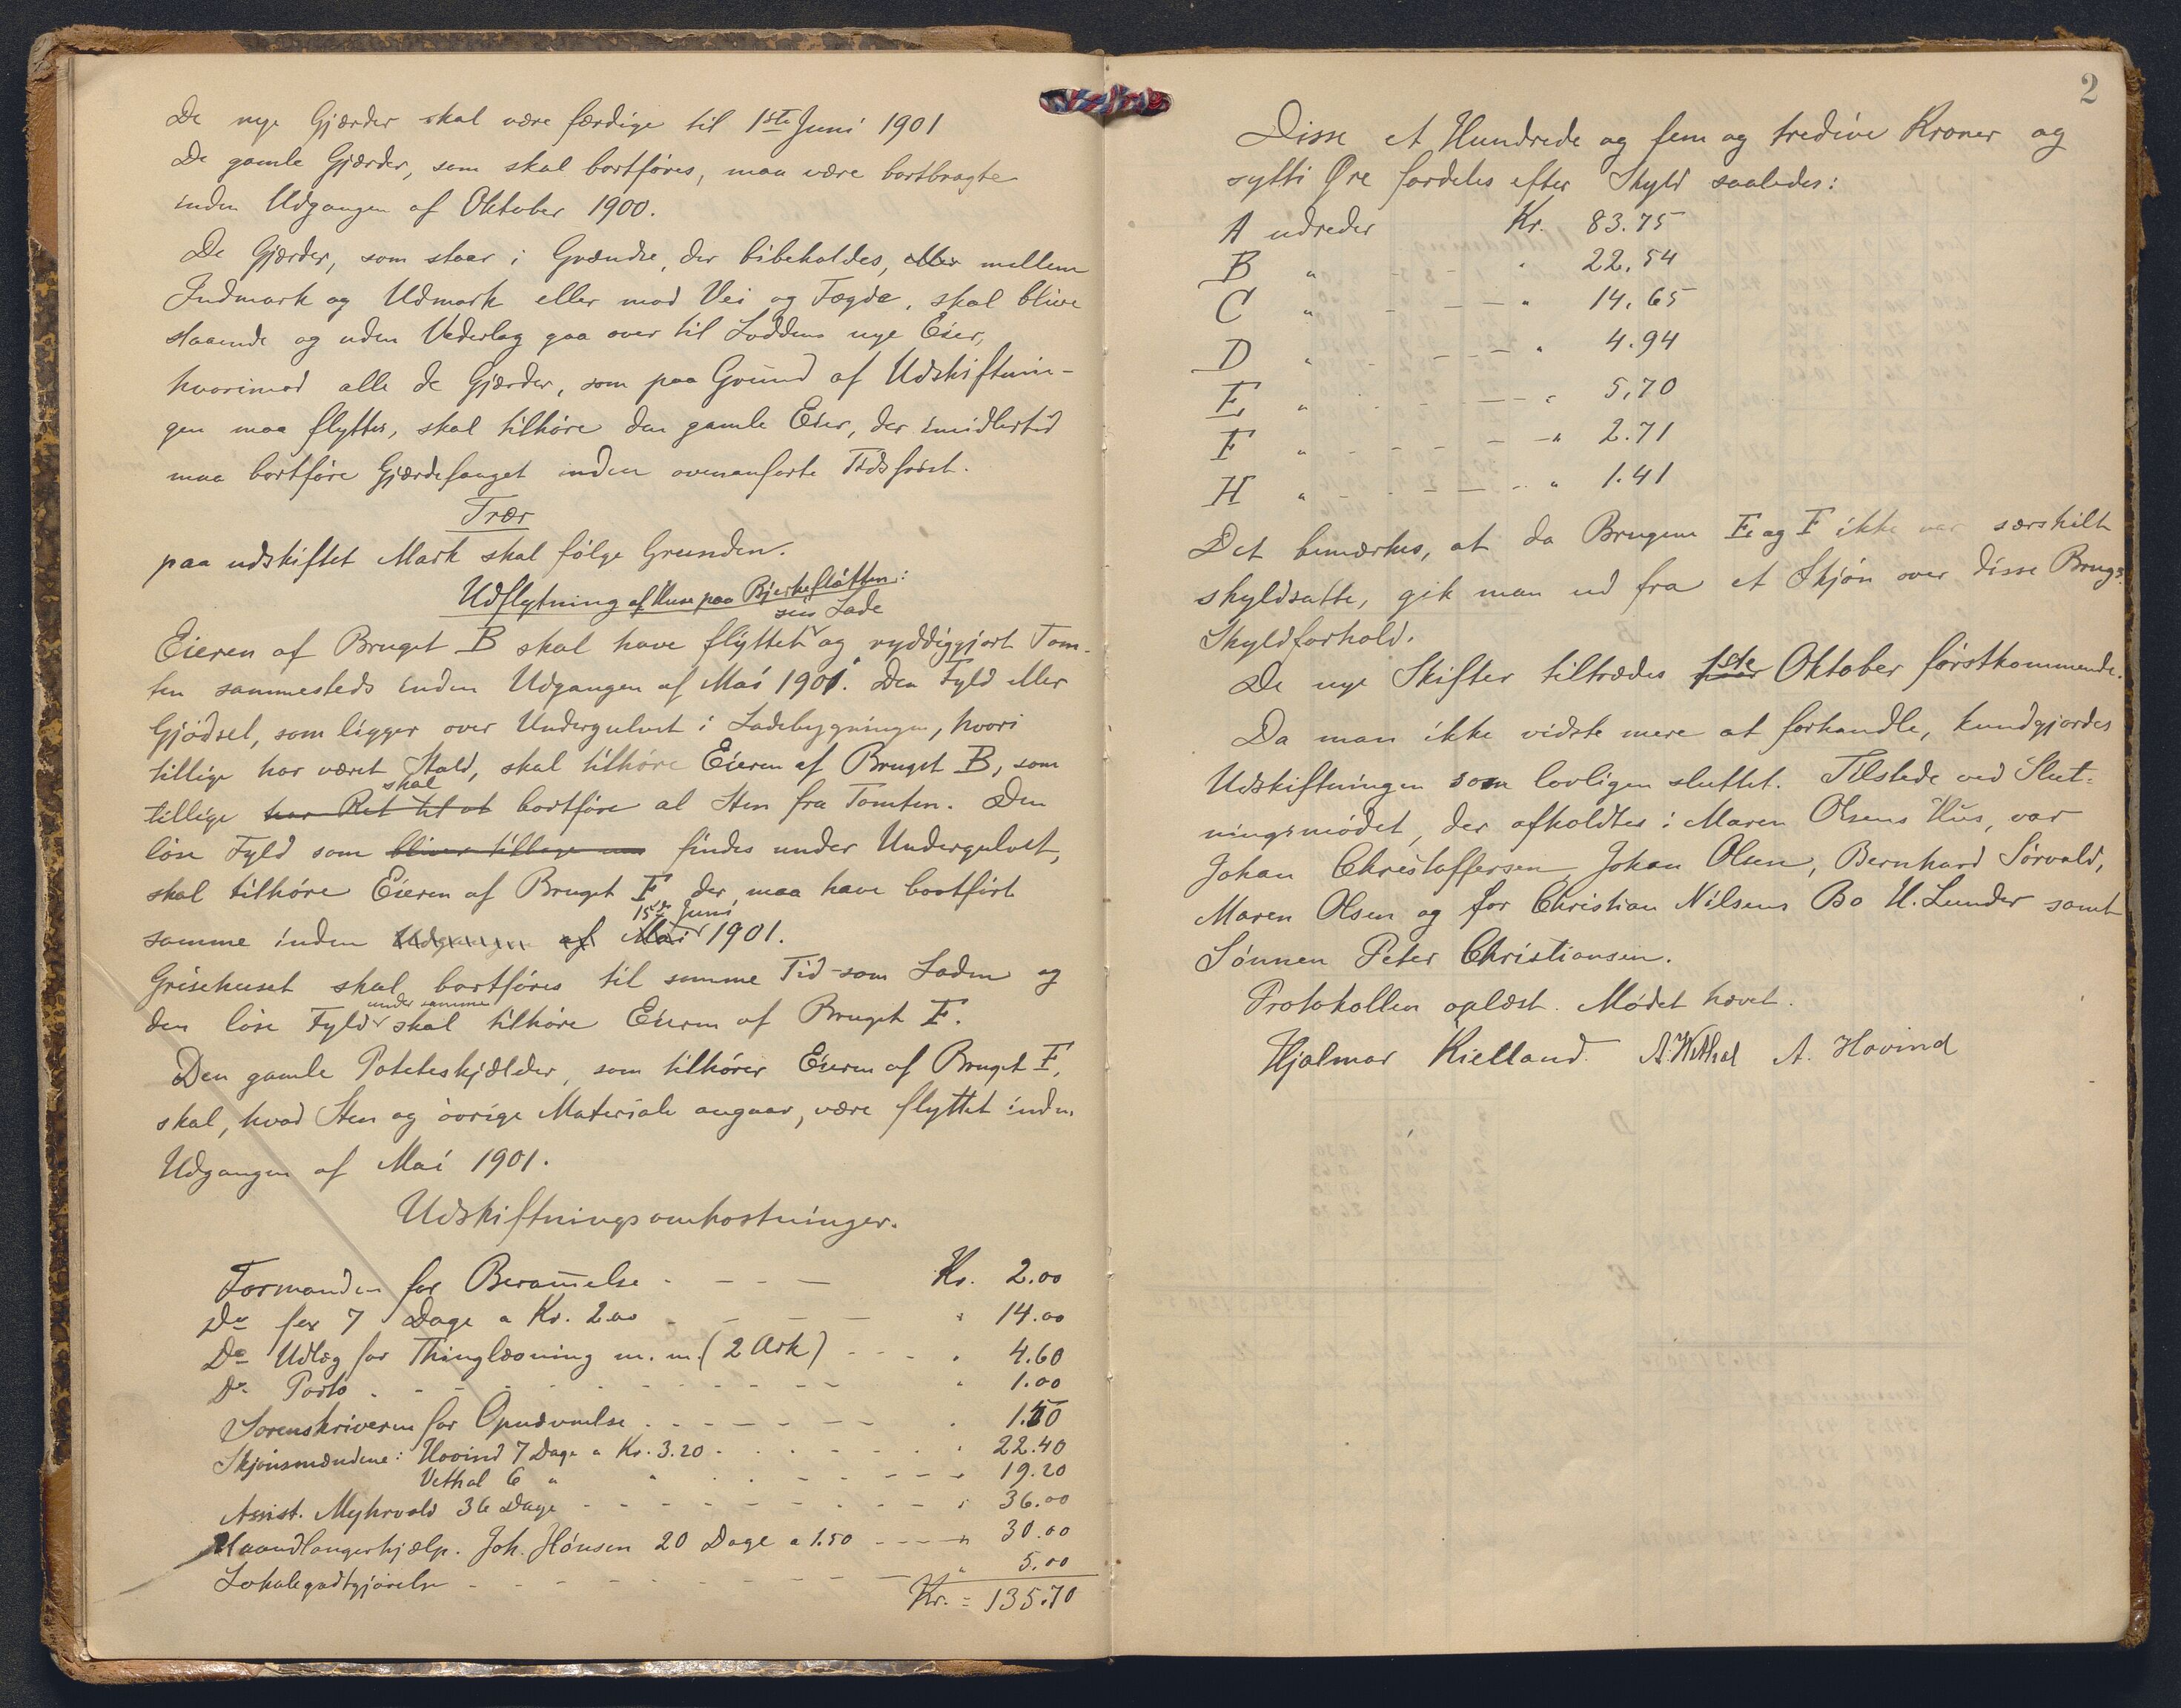 De nye Gjærder skal være færdige til 1ste Juni 1901
De gamle Gjærder, som skal bortføres, maa være bortbragte
inden Udgangen af Oktober 1900.
De Gjærder, som staar i Grændse, der bibeholdes, eller mellem
Indmark og Udmark eller mod Vei og Fægda, skal blive
staaende og uden Vederlag gaa over til Loddens nye Eier,
hvorimod alle de Gjærder, som paa Grund af Udskiftnin-
gen maa flyttes, skal tilhøre den gamle Eier, der imidlertid
maa bortføre Gjærdefanget inden ovenanførte Tidsfrist.
Trær
paa udskiftet Mark skal følge Grunden.
Udflytning af Huse paa Bjerkeslåtten:
sin Lade
Eieren af Bruget B skal have flyttet og ryddiggjort Tom-
ten sammesteds inden Udgangen af Mai 1901. Den Fyld eller
Gjødsel, som ligger over Undergulvet i Ladebygningen, hvori
tillige har været Stald, skal tilhøre Eieren af Bruget B, som
skal
tillige har Ret til at bortføre al Sten fra Tomten. Den
løse Fyld som bliver tilbage findes under Undergulvet,
skal tilhøre Eieren af Bruget F der maa have bortført
15de Juni
samme inden Udgangen af Mai 1901.
Grisehuset skal bortføres til samme Tid som Laden og
under samme
den løse Fyld skal tilhøre Eieren af Bruget F.
Den gamle Poteteskjælder, som tilhører Eieren af Bruget F,
skal, hvad Sten og øvrige Materiale angaar, være flyttet inden
Udgangen af Mai 1901.
Udskiftningsomkostninger.
Formanden for Berammelse - - - Kr. 2.00
Do for 7 Dage a Kr. 2.00 - - - " 14.00
Do Udlæg for Thinglæsning m. m. (2 Ark) - - - " 4.60
Do Porto - - - " 1.00
Sorenskriveren for Opnævnelse - - - " 1.50
Skjønsmændene: Hovind 7 Dage a Kr. 3.20 - - - " 22.40
Vethal 6 " " - - - " 19.20
Assist. Myhrvold 36 Dage - - - " 36.00
Haandlangerhjælp. Joh. Hónsen 20 Dage a 1.50 - - - " 30.00
Lokalegodtgjørelse - - - " 5.00
Kr. = 135.70
2
Disse et Hundrede og fem og tredive Kroner og
sytti Øre fordeles efter Skyld saaledes:
A udreder Kr. 83.75
B " - - " 22.54
C " - - " 14.65
D " - - " 4.94
E " - - " 5.70
F " - - " 2.71
H " - - " 1.41
Det bemærkes, at da Brugene E og F ikke var særskilt
skyldsatte, gik man ud fra et Skjøn over disse Brugs
Skyldforhold.
De nye Skifter tiltrædes 1ste Oktober førstkommende.
Da man ikke vidste mere at forhandle, kundgjordes
Udskiftningen som lovligen sluttet. Tilstede ved Slut-
ningsmødet, der afholdtes i Maren Olsens Hus, var
Johan Christoffersen, Johan Olsen, Bernhard Sørvald,
Maren Olsen og for Christian Nilsens Bo U. Lunder samt
Sønnen Peter Christiansen.
Protokollen oplæst. Mødet hævet.
Hjalmar Kielland. A. Wethal A. Hovind